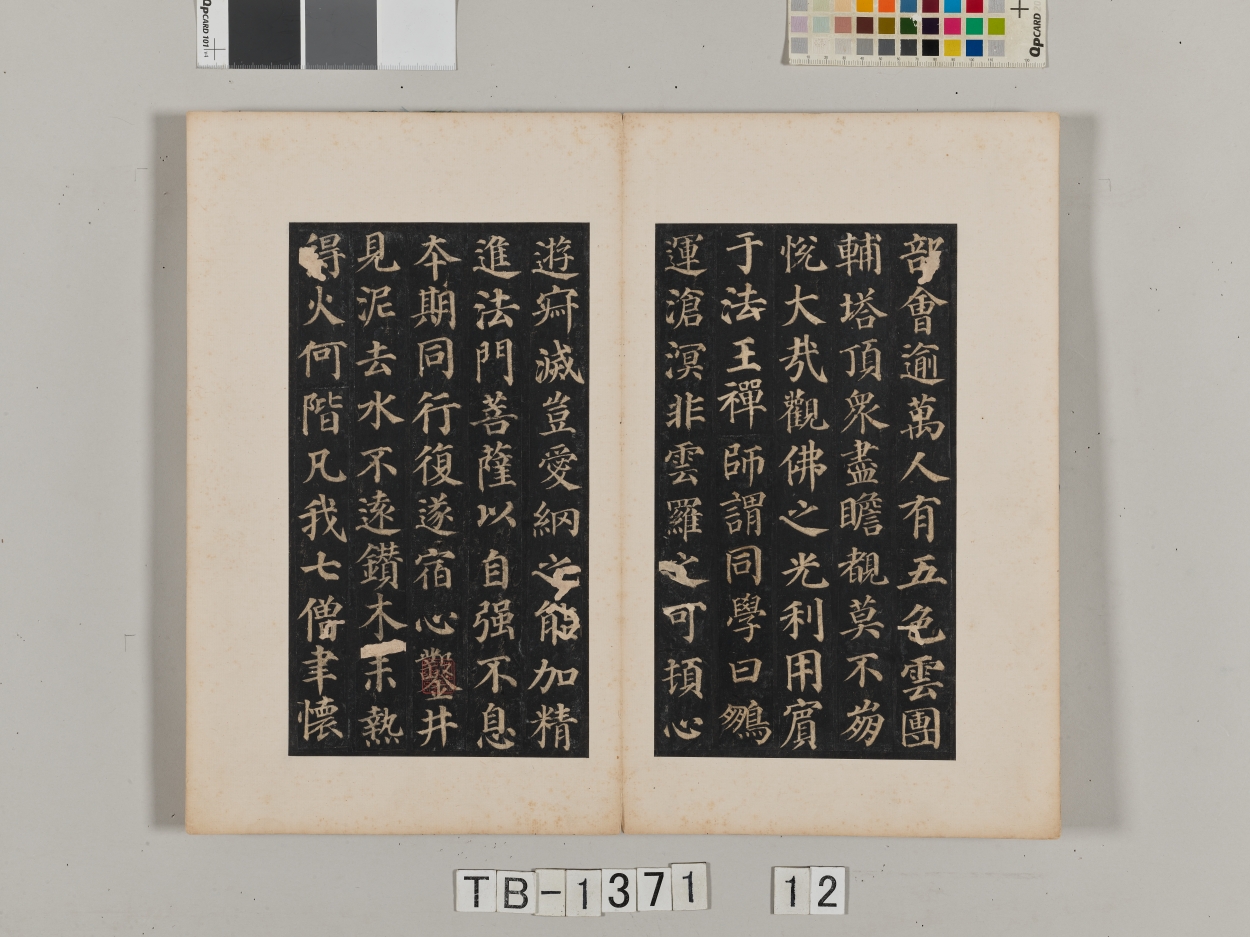 部會逾萬人有五色雲團
輔塔頂眾盡瞻覩莫不崩
悅大哉觀佛之光利用賓
于法王禪師謂同學曰鵬
運滄溟非雲羅之可頓心
遊寂滅豈愛網之能加精
進法門菩薩以自强不息
本期同行復遂宿心鑿井
見泥去水不遠鑽木未熱
得火何階凡我七僧聿懷
QpCARD 101
QpCARD
TB-1371 12